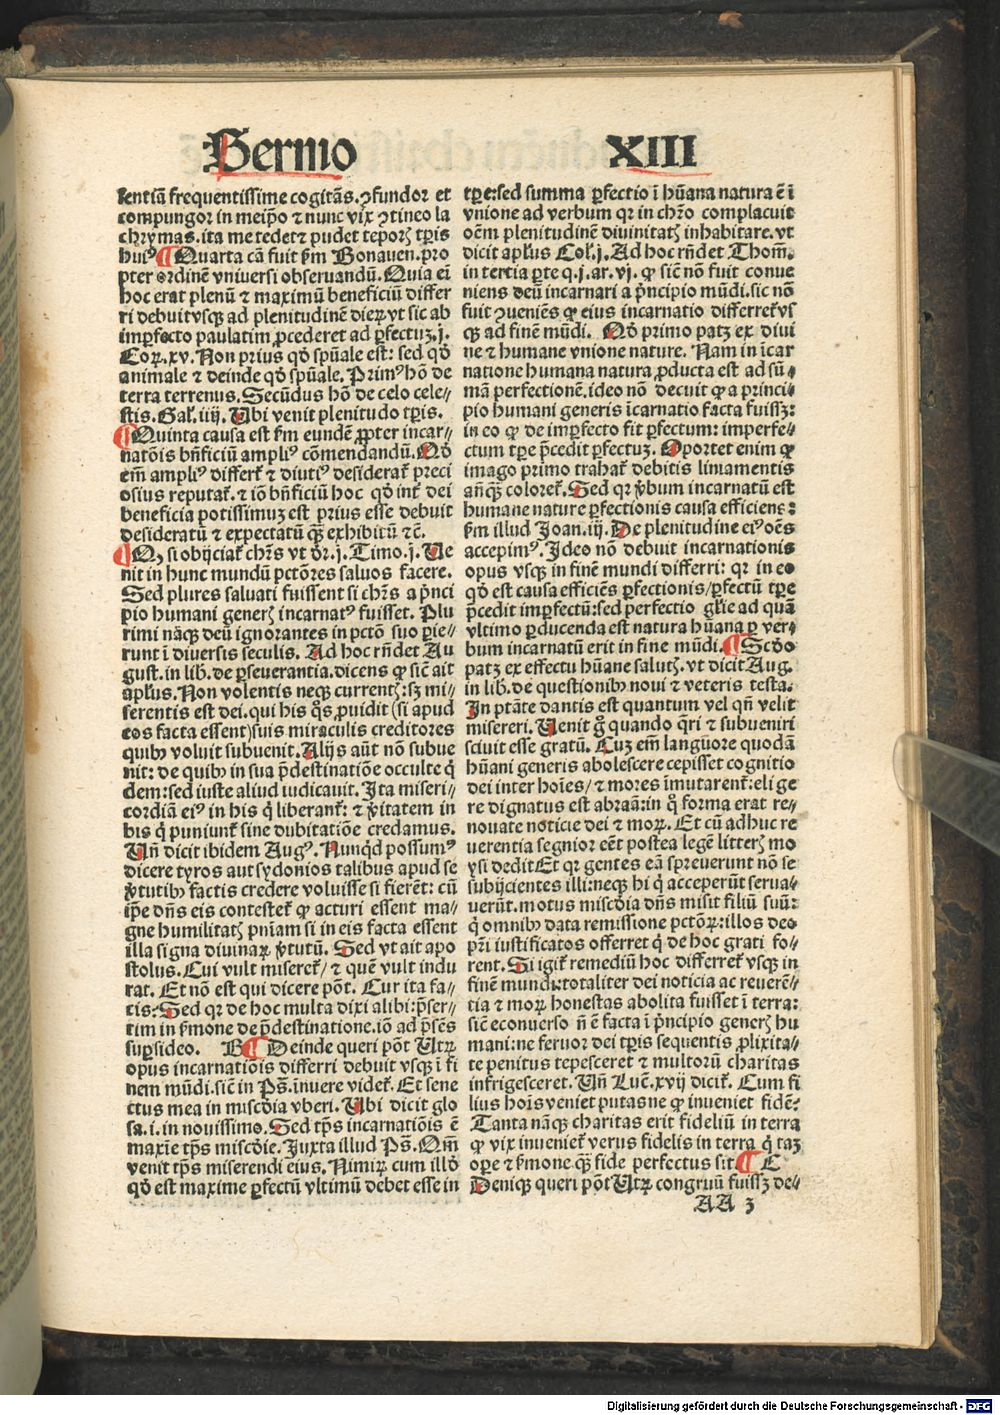 Sermo XIII
lentiā frequentissime cogitās. ꝯfundor et
compungor in meip̄o ⁊ nunc vix ꝯtineo la
chrymas. ita me tedet ⁊ pudet teporꝭ tꝑis
huiꝰ ¶ Quarta cā fuit ẜm Bonauen. pro
pter ordinē vniuersi obseruandū. Quia em̄
hoc erat plenū ⁊ maximū beneficiū differ
ri debuit vsqꝫ ad plenitudinē dieꝝ vt sic ab
imꝑfecto paulatim ꝓcederet ad ꝑfectuꝫ. j.
Coꝝ. xv. Non prius qd̓ sp̄uale est: sed qd̓
animale ⁊ deinde qd̓ sp̄uale. Primꝰ hō de
terra terrenus. Secūdus hō de celo cele⸗
stis. Gal̓. iiij. Ubi venit plenitudo tꝑis.
¶ Quinta causa est ẜm eundē ꝓpter incar⸗
natōis bn̄ficiū ampliꝰ cōmendandū. Qd̓
em̄ ampliꝰ differt̉ ⁊ diutiꝰ desiderat̉ preci
osius reputat̉. ⁊ iō bn̄ficiū hoc qd̓ int̓ dei
beneficia potissimuꝫ est prius esse debuit
desideratū ⁊ expectatū qꝫ̄ exhibitū ⁊c̄.
¶ Q, si obijciat̉ chr̄s vt dr̄. j. Timo. j. Ue
nit in hunc mundū pctōres saluos facere.
Sed plures saluati fuissent si chr̄s a p̄nci
pio humani generꝭ incarnatꝰ fuisset. Plu
rimi nāqꝫ deū ignorantes in pctō suo ꝑie⸗
runt ī diuersis seculis. Ad hoc rn̄det Au
gust. in lib. de ꝑseuerantia. dicens ꝙ sic̄ ait
apl̄us. Non volentis neqꝫ currentꝭ: sꝫ mi⸗
serentis est dei. qui his qͦs ꝓuidit (si apud
eos facta essent) suis miraculis creditores
quibꝰ voluit subuenit. Alijs aūt nō subue
nit: de quibꝰ in sua p̄destinatiōe occulte qͥ
dem: sed iuste aliud iudicauit. Ita miseri⸗
cordiā eiꝰ in his qͥ liberant̉: ⁊ v̓itatem in
his qͥ puniunt̉ sine dubitatiōe credamus.
Un̄ dicit ibidem Augꝰ. Nunqͥd possumꝰ
dicere tyros aut sydonios talibus apud se
v̓tutibꝰ factis credere voluisse si fierēt: cū
ip̄e dn̄s eis contestet̉ ꝙ acturi essent ma⸗
gne humilitatꝭ pn̄iam si in eis facta essent
illa signa diuinaꝝ v̓tutū. Sed vt ait apo
stolus. Cui vult miseret̉ / ⁊ quē vult indu
rat. Et nō est qui dicere pōt. Cur ita fa⸗
cis. Sed qꝛ de hoc multa dixi alibi: p̄ser⸗
tim in ẜmone de p̄destinatione. iō ad p̄sēs
suꝑsideo. B ¶ Deinde queri pōt Utꝝ
opus incarnatiōis differri debuit vsqꝫ ī fi
nem mūdi. sic̄ in Ps̄. īnuere videt̉. Et sene
ctus mea in misc̄dia vberi. Ubi dicit glo
sa. i. in nouissimo. Sed tꝑs incarnatiōis ē
maxīe tꝑs misc̄die. Juxta illud Ps̄. Qm̄
venit tꝑs miserendi eius. Nimiꝝ cum illd̓
qd̓ est maxime ꝑfectū vltimū debet esse in
tꝑe: sed summa ꝑfectio ī hūana natura ē ī
vnione ad verbum qꝛ in chr̄o complacuit
oēm plenitudinē diuinitatꝭ inhabitare. vt
dicit apl̄us Col̓. j. Ad hoc rn̄det Thom̄.
in tertia ꝑte q. j. ar. vj. ꝙ sic̄ nō fuit conue
niens deū incarnari a p̄ncipio mūdi. sic nō
fuit ꝯueniēs ꝙ eius incarnatio differret̉ vs
qꝫ ad finē mūdi. Qd̓ primo patꝫ ex diui
ne ⁊ humane vnione nature. Nam in īcar
natione humana natura ꝓducta est ad sū⸗
mā perfectionē. ideo nō decuit ꝙ a princi⸗
pio humani generis īcarnatio facta fuissꝫ:
in eo ꝙ de imꝑfecto fit ꝑfectum: imperfe⸗
ctum tꝑe p̄cedit ꝑfectuꝫ. Oportet enim ꝙ
imago primo trahat̉ debitis liniamentis
an̄qꝫ̄ coloret̉. Sed qꝛ v̓bum incarnatū est
humane nature ꝑfectionis causa efficiens:
ẜm illud Joan. iij. De plenitudine eiꝰ oēs
accepimꝰ. Ideo nō debuit incarnationis
opus vsqꝫ in finē mundi differri: qꝛ in eo
qd̓ est causa efficiēs ꝑfectionis / ꝑfectū tꝑe
p̄cedit imꝑfectū: sed perfectio gl̓ie ad quā
vltimo ꝑducenda est natura hūana ꝑ ver⸗
bum incarnatū erit in fine mūdi. ¶ Scd̓o
patꝫ ex effectu hūane salutꝭ. vt dicit Aug.
in lib. de questionibꝰ noui ⁊ veteris testa.
In ptāte dantis est quantum vel qn̄ velit
misereri. Uenit g̊ quando q̄ri ⁊ subueniri
sciuit esse gratū. Cuꝫ em̄ langūore quodā
hūani generis abolescere cepisset cognitio
dei inter hoīes / ⁊ mores īmutarent̉: eli ge
re dignatus est abraā: in qͦ forma erat re⸗
nouate noticie dei ⁊ moꝝ. Et cū adhuc re
uerentia segnior eēt postea legē litterꝭ mo
ysi dedit Et qꝛ gentes eā spreuerunt nō se
subijcientes illi: neqꝫ hi qͥ acceperūt serua⸗
uerūt. motus misc̄dia dn̄s misit filiū suū:
qͥ omnibꝰ data remissione pctōꝝ: illos deo
pr̄i iustificatos offerret qͥ de hoc grati fo⸗
rent. Si igit̉ remediū hoc differret̉ vsqꝫ in
finē mundi: totaliter dei noticia ac reuerē⸗
tia ⁊ moꝝ honestas abolita fuisset ī terra:
sic̄ econuerso n̄ ē facta ī p̄ncipio generꝭ hu
mani: ne feruor dei tꝑis sequentis ꝓlixita⸗
te penitus tepesceret ⁊ multorū charitas
infrigesceret. Un̄ Luc̄. xvij dicit̉. Cum fi
lius hoīs veniet putas ne ꝙ inueniet fidē:
Tanta nāqꝫ charitas erit fideliū in terra
ꝙ vix inueniet̉ verus fidelis in terra qͥ taꝫ
oꝑe ⁊ ẜmone qꝫ̄ fide perfectus sit. ¶ C
Deniqꝫ queri pōt Utꝝ congruū fuissꝫ de⸗
AA 3
Digitalisierung gefördert durch die Deutsche Forschungsgemeinschaft - DFG